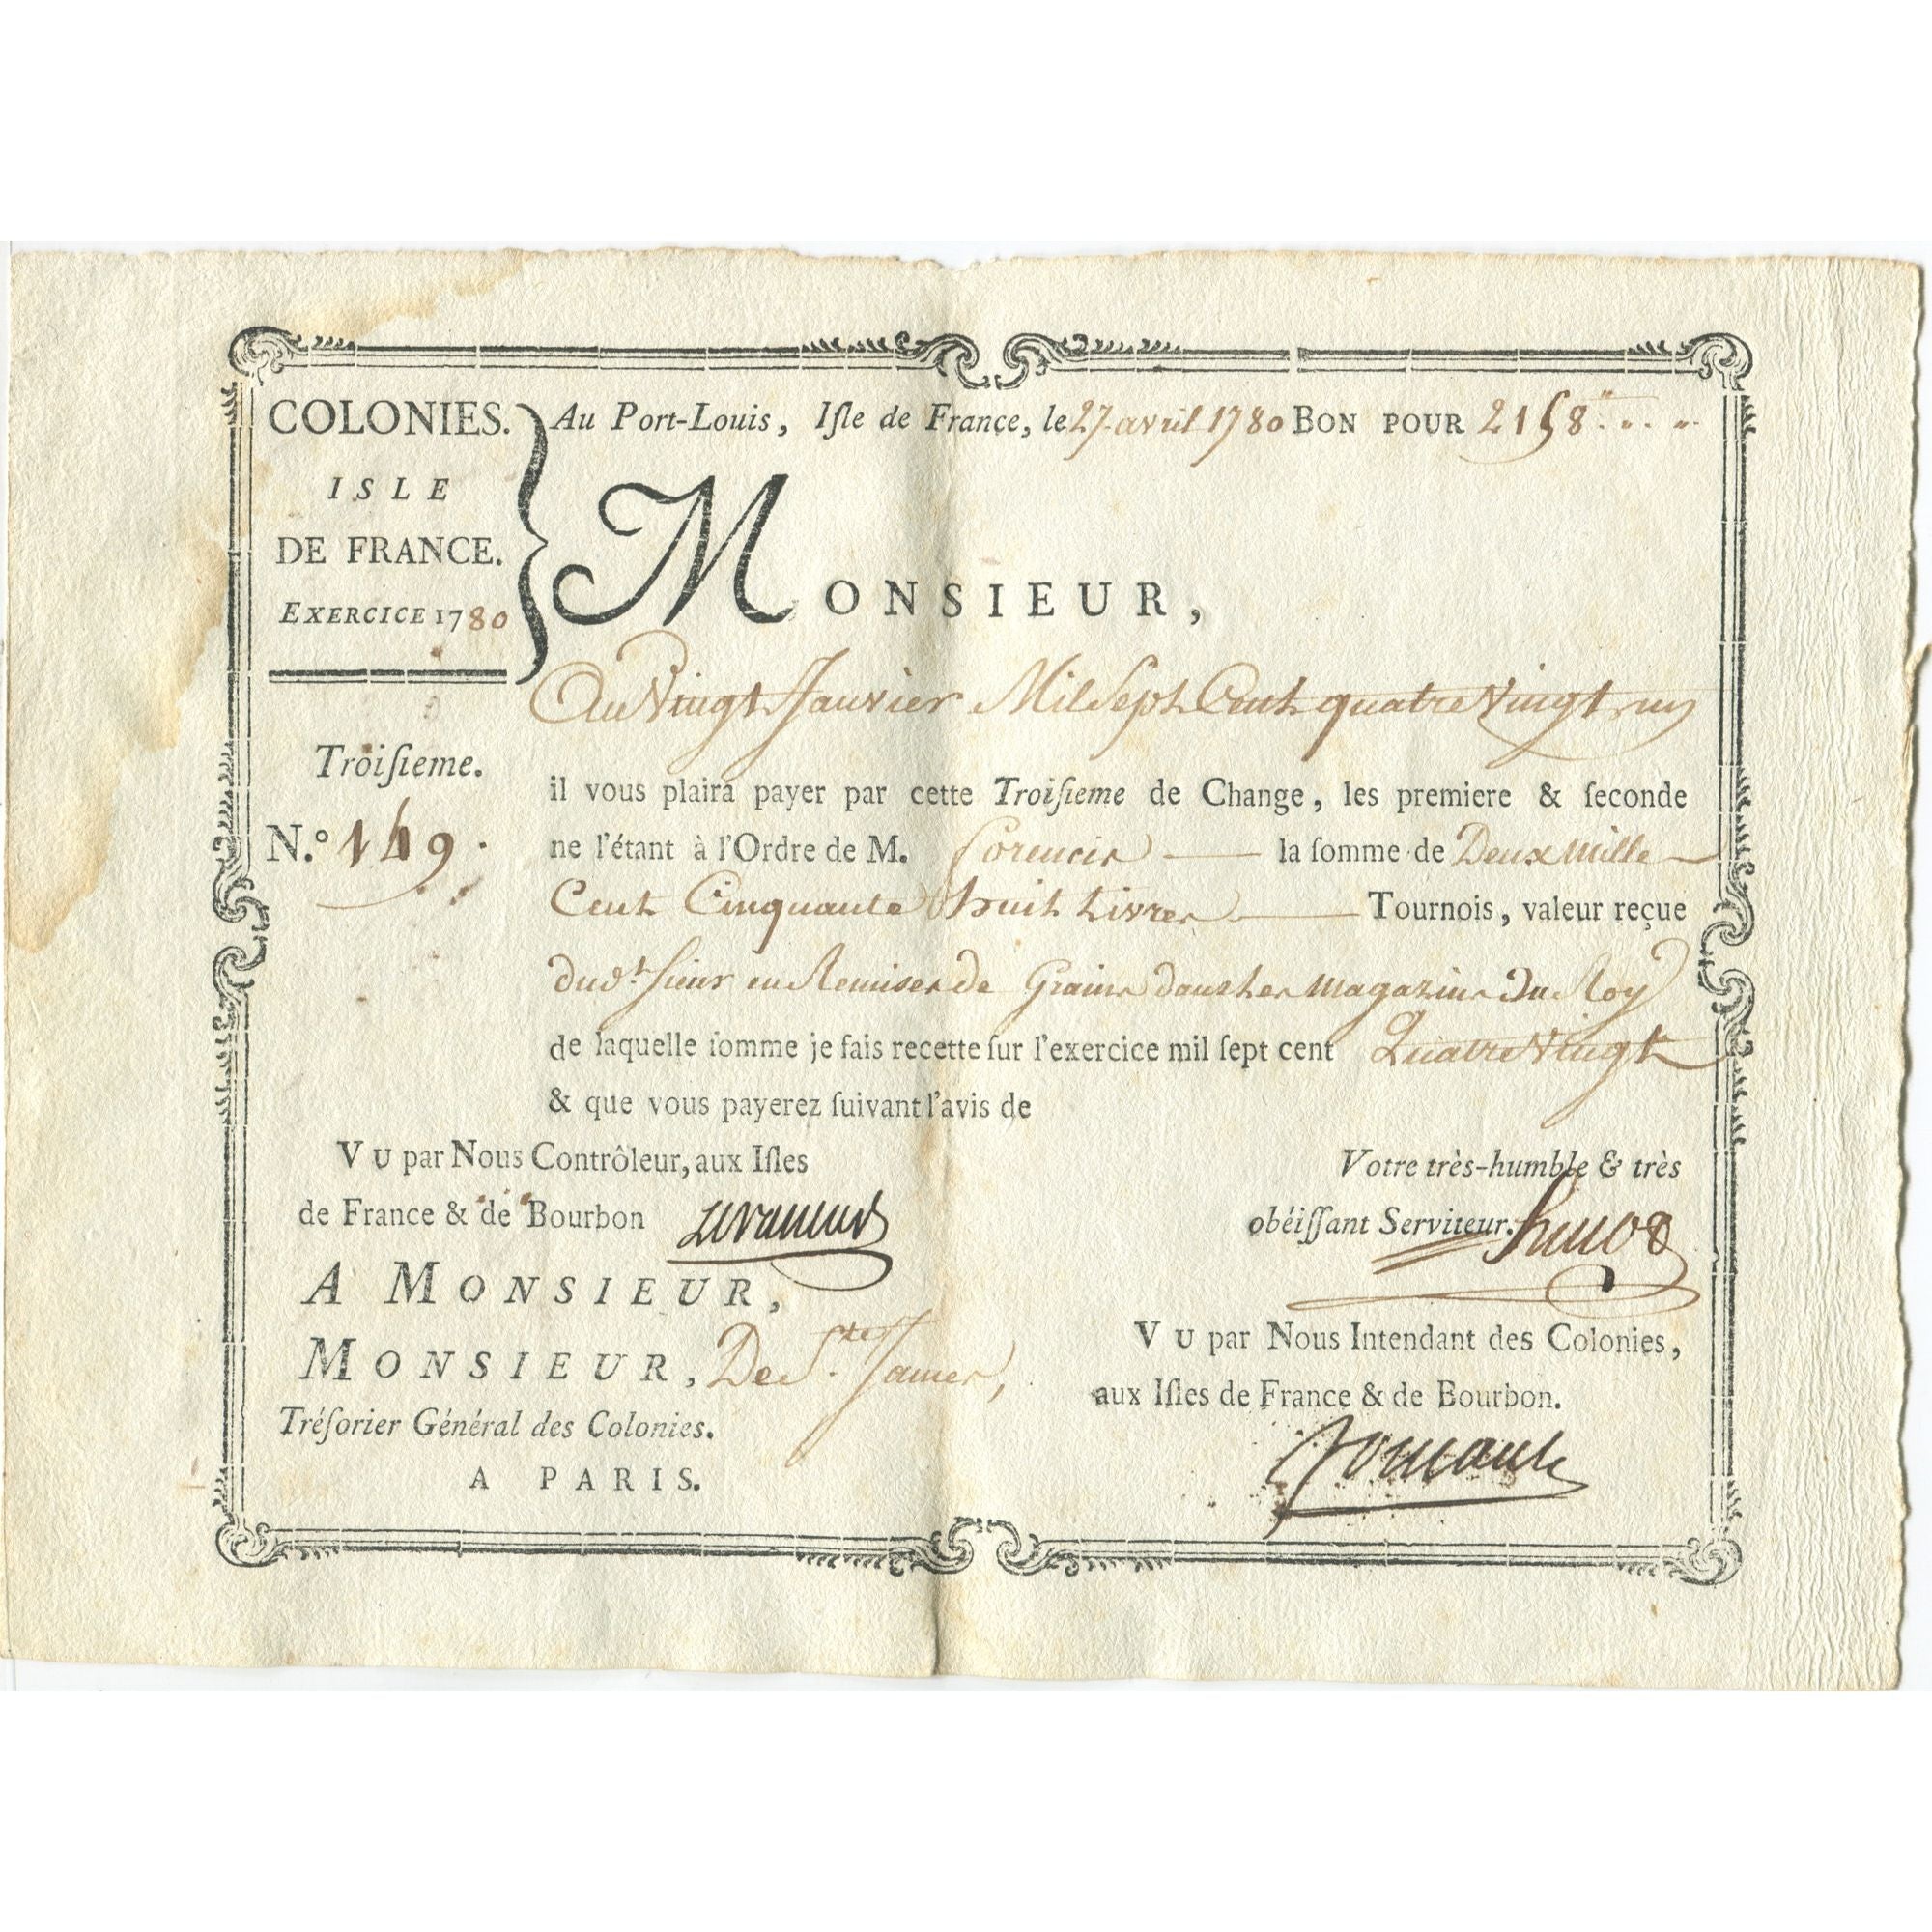 COLONIES.
ISLE
DE FRANCE.
EXERCICE 1780
Au Port-Louis, Iſle de France, le 27 avril 1780 BON POUR 2158
MONSIEUR,
Au Vingt Janvier Mil Sept Cent quatre Vingt un
Troiſieme.
N.° 149.
il vous plaira payer par cette Troiſieme de Change, les premiere & ſeconde
ne l'étant à l'Ordre de M. la ſomme de Deux Mille
Cent Cinquante huit Livres Tournois, valeur reçue
dud.t Sieur en Remises de Grains dans les Magazins du Roy
de laquelle ſomme je fais recette ſur l'exercice mil ſept cent Quatre Vingt
& que vous payerez ſuivant l'avis de
VU par Nous Contrôleur, aux Iſles
de France & de Bourbon
Votre très-humble & très
obéiſſant Serviteur.
A MONSIEUR,
MONSIEUR, De S.te James,
Tréſorier Général des Colonies.
A PARIS.
VU par Nous Intendant des Colonies,
aux Iſles de France & de Bourbon.